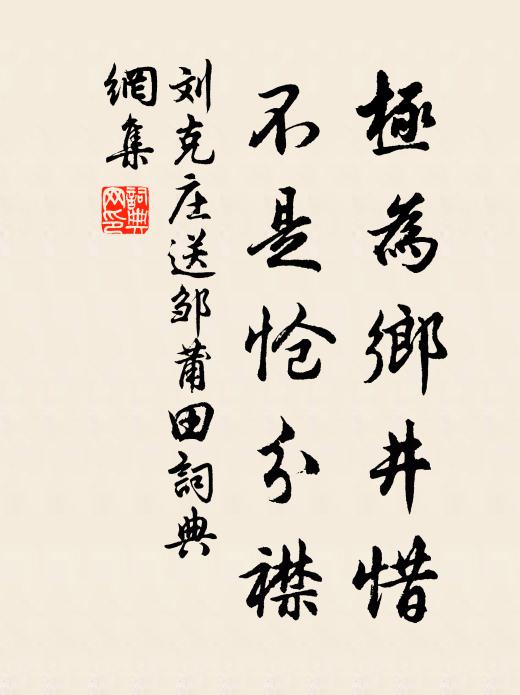 極為鄉井惜
不是怆分襟
刘克庄送邹莆田詞典
網集
詞典
网印